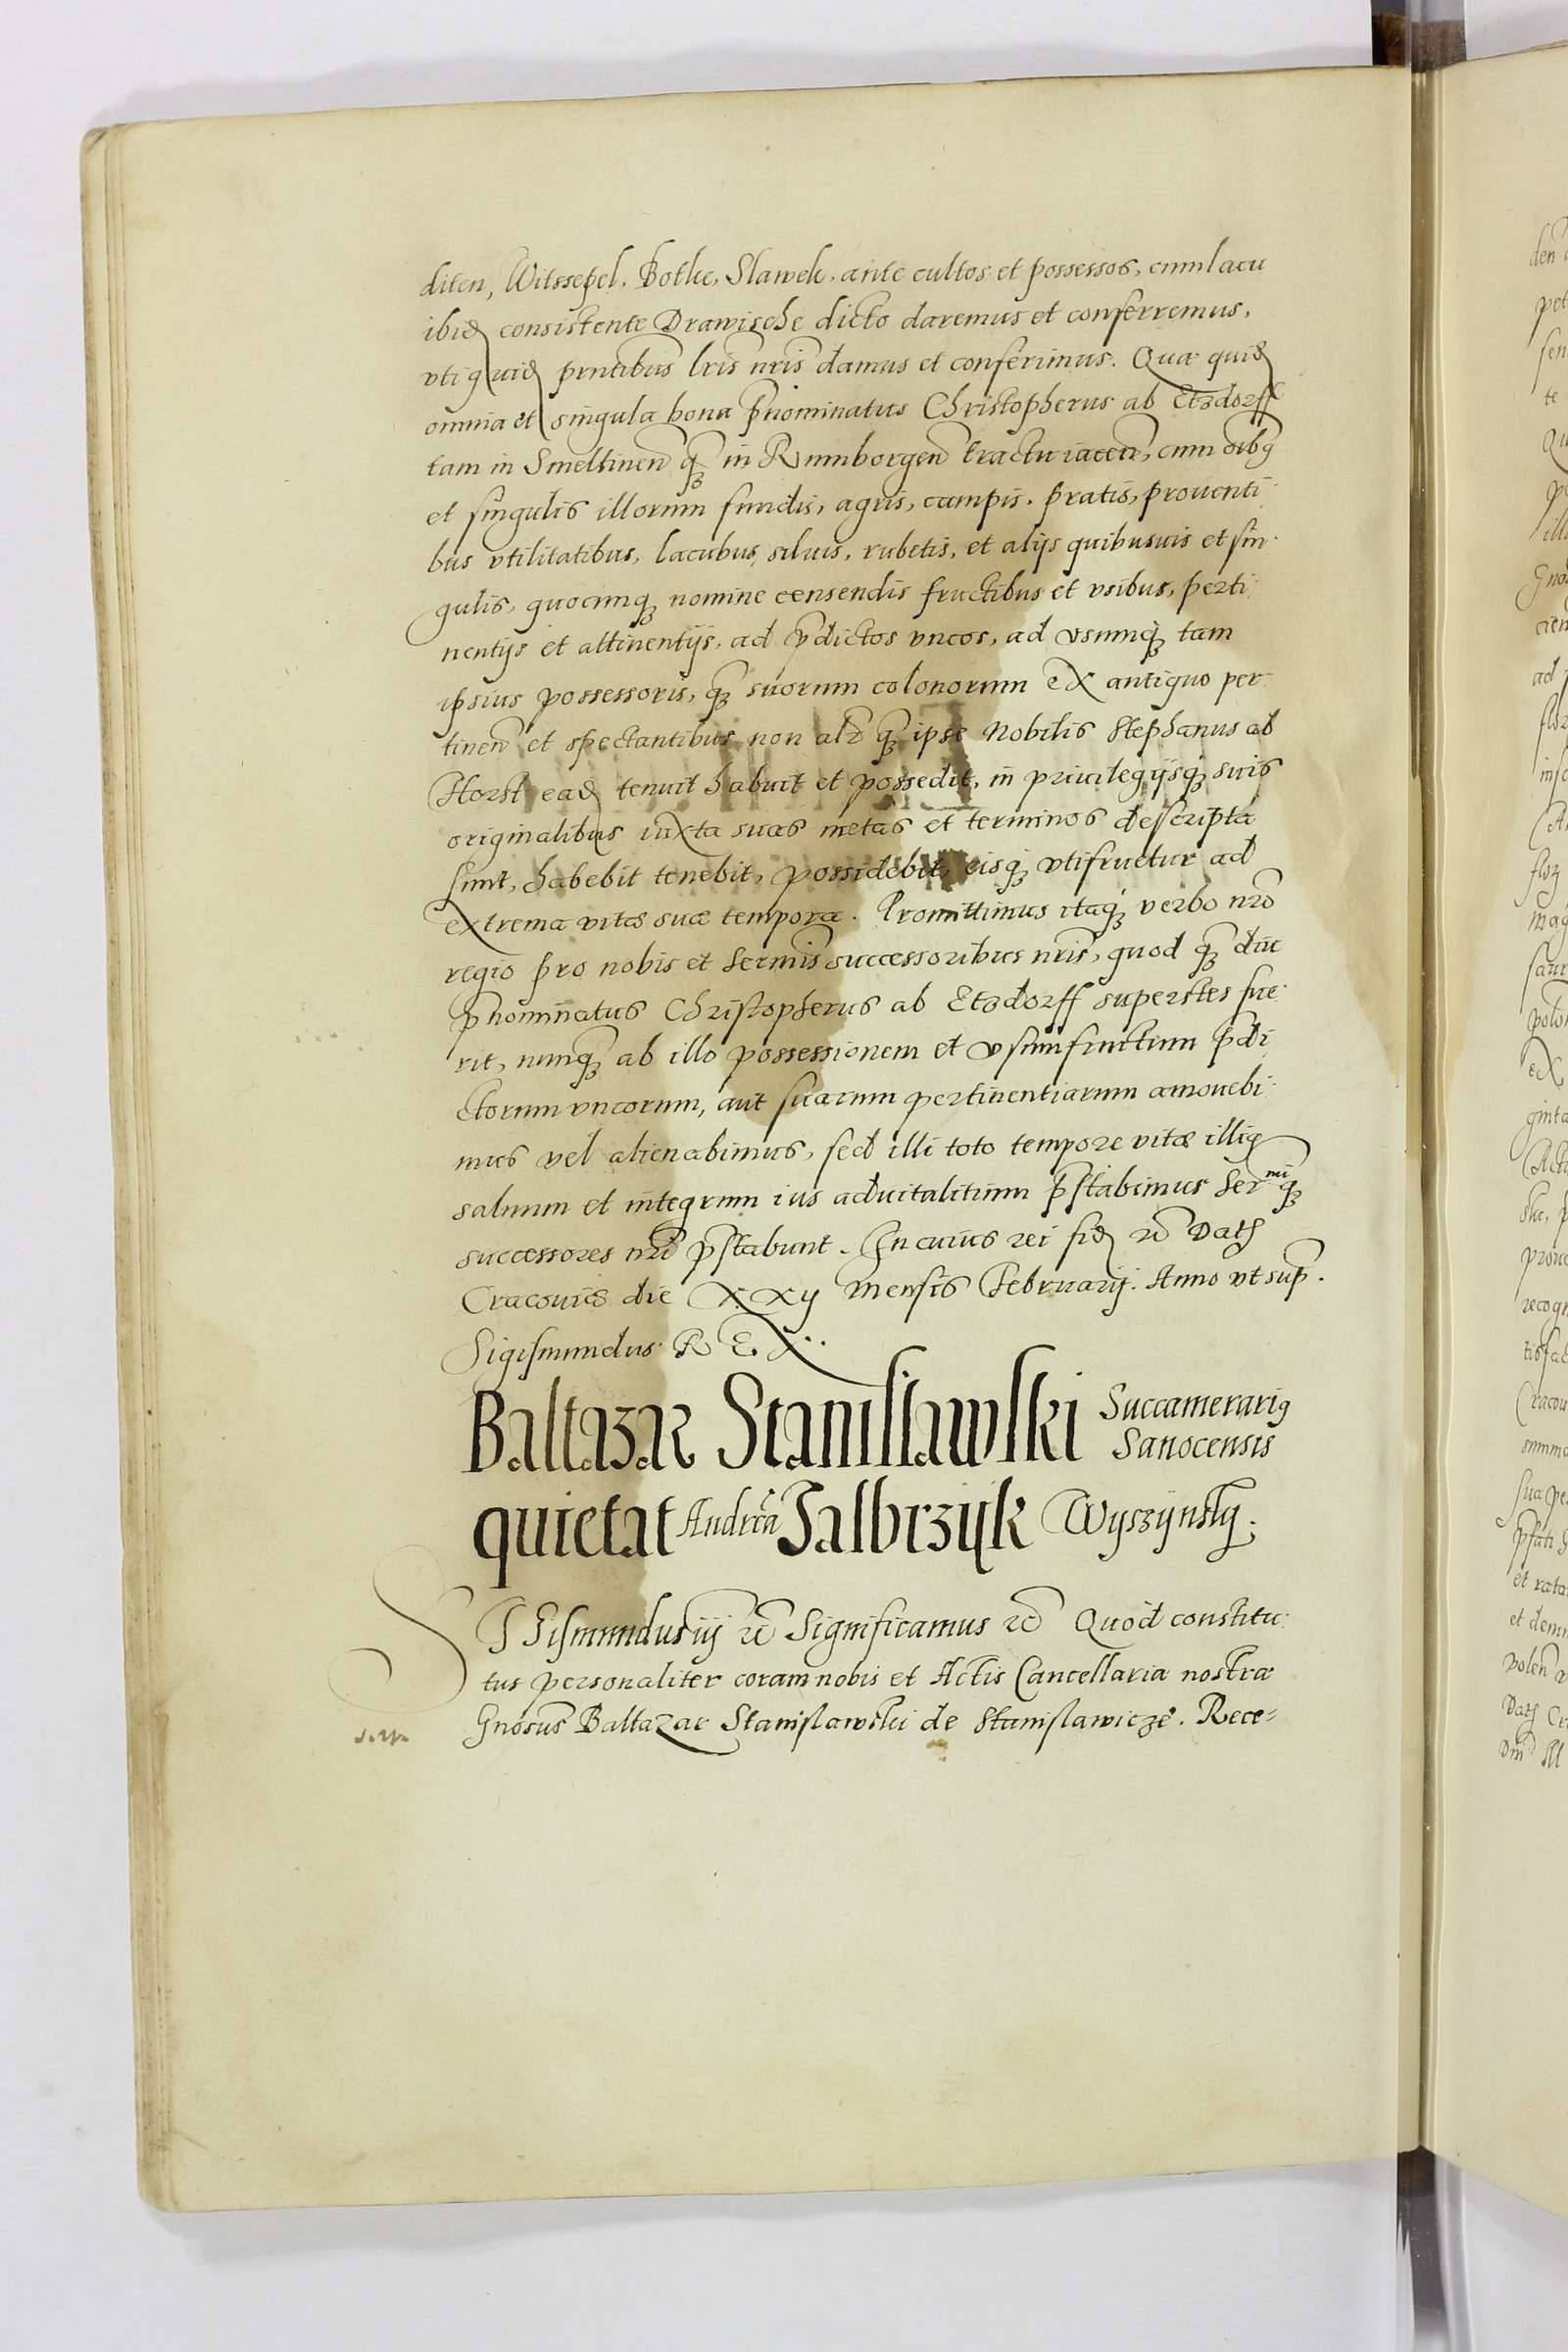 diten, Witssepel. Bothe, Slawek. ante cultos et possessos, cum lacu
ibid consistente Drawische dicto daremus et conferremus,
vti quid pntibus lris nris damus et conferimus. Quæ quid
omnia et singula bona pnominatus Christopherus ab Etzdorff
tam in Smeltinen q in Rumborgen tractu iacen, cum oibg
et singulis illorum fundis, agris, campis, pratis, prouenti
bus vtilitatibus, lacubus, siluis, rubetis, et alijs quibusuis et sin
gulis, quocunq nomine censendis fructibus et vsibus, perti
nentijs et attinentijs, ad pdictos vncos, ad vsumq tam
ipsius possessoris, q suorum colonorum ex antiquo per
tinen et spectantibus non alr q ipse Nobilis Stephanus ab
Horst ead tenuit habuit et possedit, in priuilegijsq suis
originalibus iuxta suas metas et terminos descripta
sunt, habebit tenebit, possidebit, eisq vtifruetur ad
extrema vitæ suæ tempora. Promittimus itaq verbo nro
regio pro nobis et Sermis successoribus nris, quod q diu
pnominatus Christopherus ab Etzdorff superstes fue
rit, nunq ab illo possessionem et vsumfructum pdi
ctorum vncorum, aut suarum pertinentiarum amouebi
mus vel alienabimus, sed illi toto tempore vitæ illig
saluum et integrum ius aduitalitium pstabimus Sermiq
successores nri pstabunt. In cuius rei fid rc Dat
Cracouiæ die XXII mensis Februarij. Anno vt sup.
Sigismundus REX..
Baltazar Stanislawski Succamerarig
Sanocensis
quietat Andrea Jalbrzijk Wyszynsky.
SIGismundus iij rc Significamus rc Quod constitu
tus personaliter coram nobis et Actis Cancellaria nostræ
Gnosus Baltazar Stanislawski de Stanislawicze. Rece=